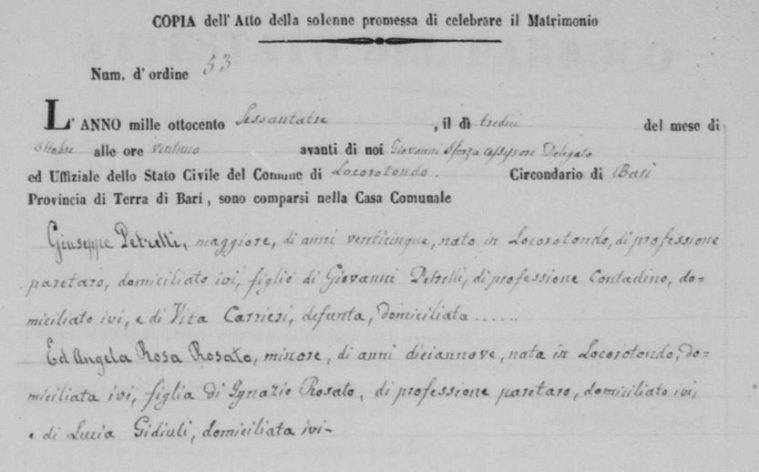 COPIA dell'Atto della solenne promessa di celebrare il Matrimonio
Num. d'ordine 53
L'ANNO mille ottocento Sessantatre , il dì tredici del mese di
Ottobre alle ore ventuno avanti di noi Giovanni Sforza Assessore Delegato
ed Uffiziale dello Stato Civile del Comune di Locorotondo. Circondario di Bari
Provincia di Terra di Bari, sono comparsi nella Casa Comunale
Giuseppe Petrelli, maggiore, di anni venticinque, nato in Locorotondo, di professione
paretaro, domiciliato ivi, figlio di Giovanni Petrelli, di professione Contadino, do=
miciliato ivi, e di Vita Carrieri, defunta, domiciliata ......
Ed Angela Rosa Rosato, minore, di anni diciannove, nata in Locorotondo, do=
miciliata ivi, figlia di Ignazio Rosato, di professione paretaro, domiciliato ivi,
e di Lucia Gidiuli, domiciliata ivi-